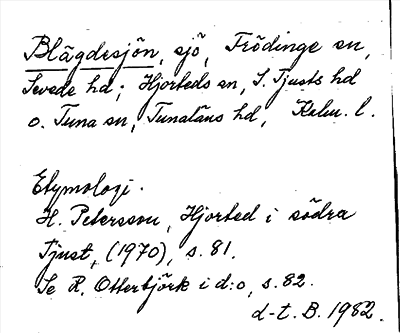 Blägdesjön, sjö, Frödinge sn,
Sevede hd; Hjorteds sn, S. Tjusts hd
o. Tuna sn, Tunaläns hd, Kalm. l.
Etymologi.
H. Petersson, Hjorted i södra
Tjust, (1970), s. 81.
Se R. Otterbjörk i d:o, s. 82.
d-t. B. 1982.